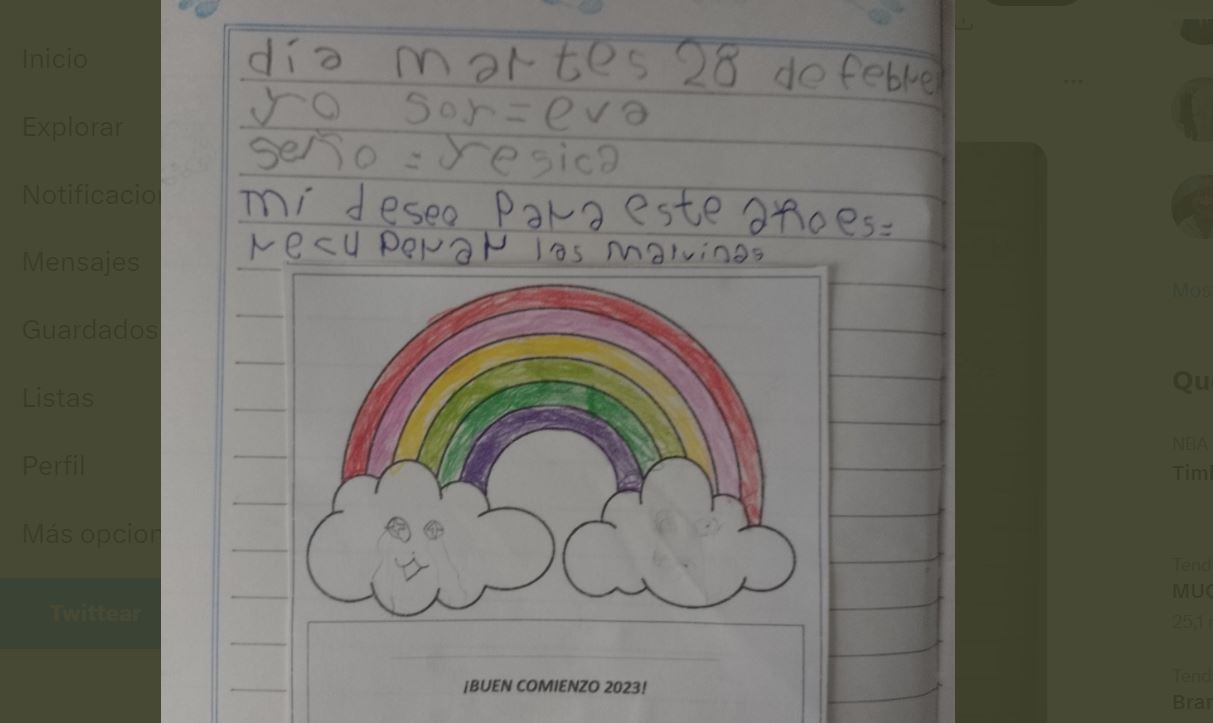 Inicio
Explorar
Notificacion
Mensajes
Guardados
Listas
Perfil
Más opcion
Twittear
día martes 28 de febre
yo sor=eva
seño = yesica
mi deseo para este año es=
recuperar las malvinas
¡BUEN COMIENZO 2023!
Mos
Qu
NBA
Timl
Tend
MUC
25,1
Tend
Bran